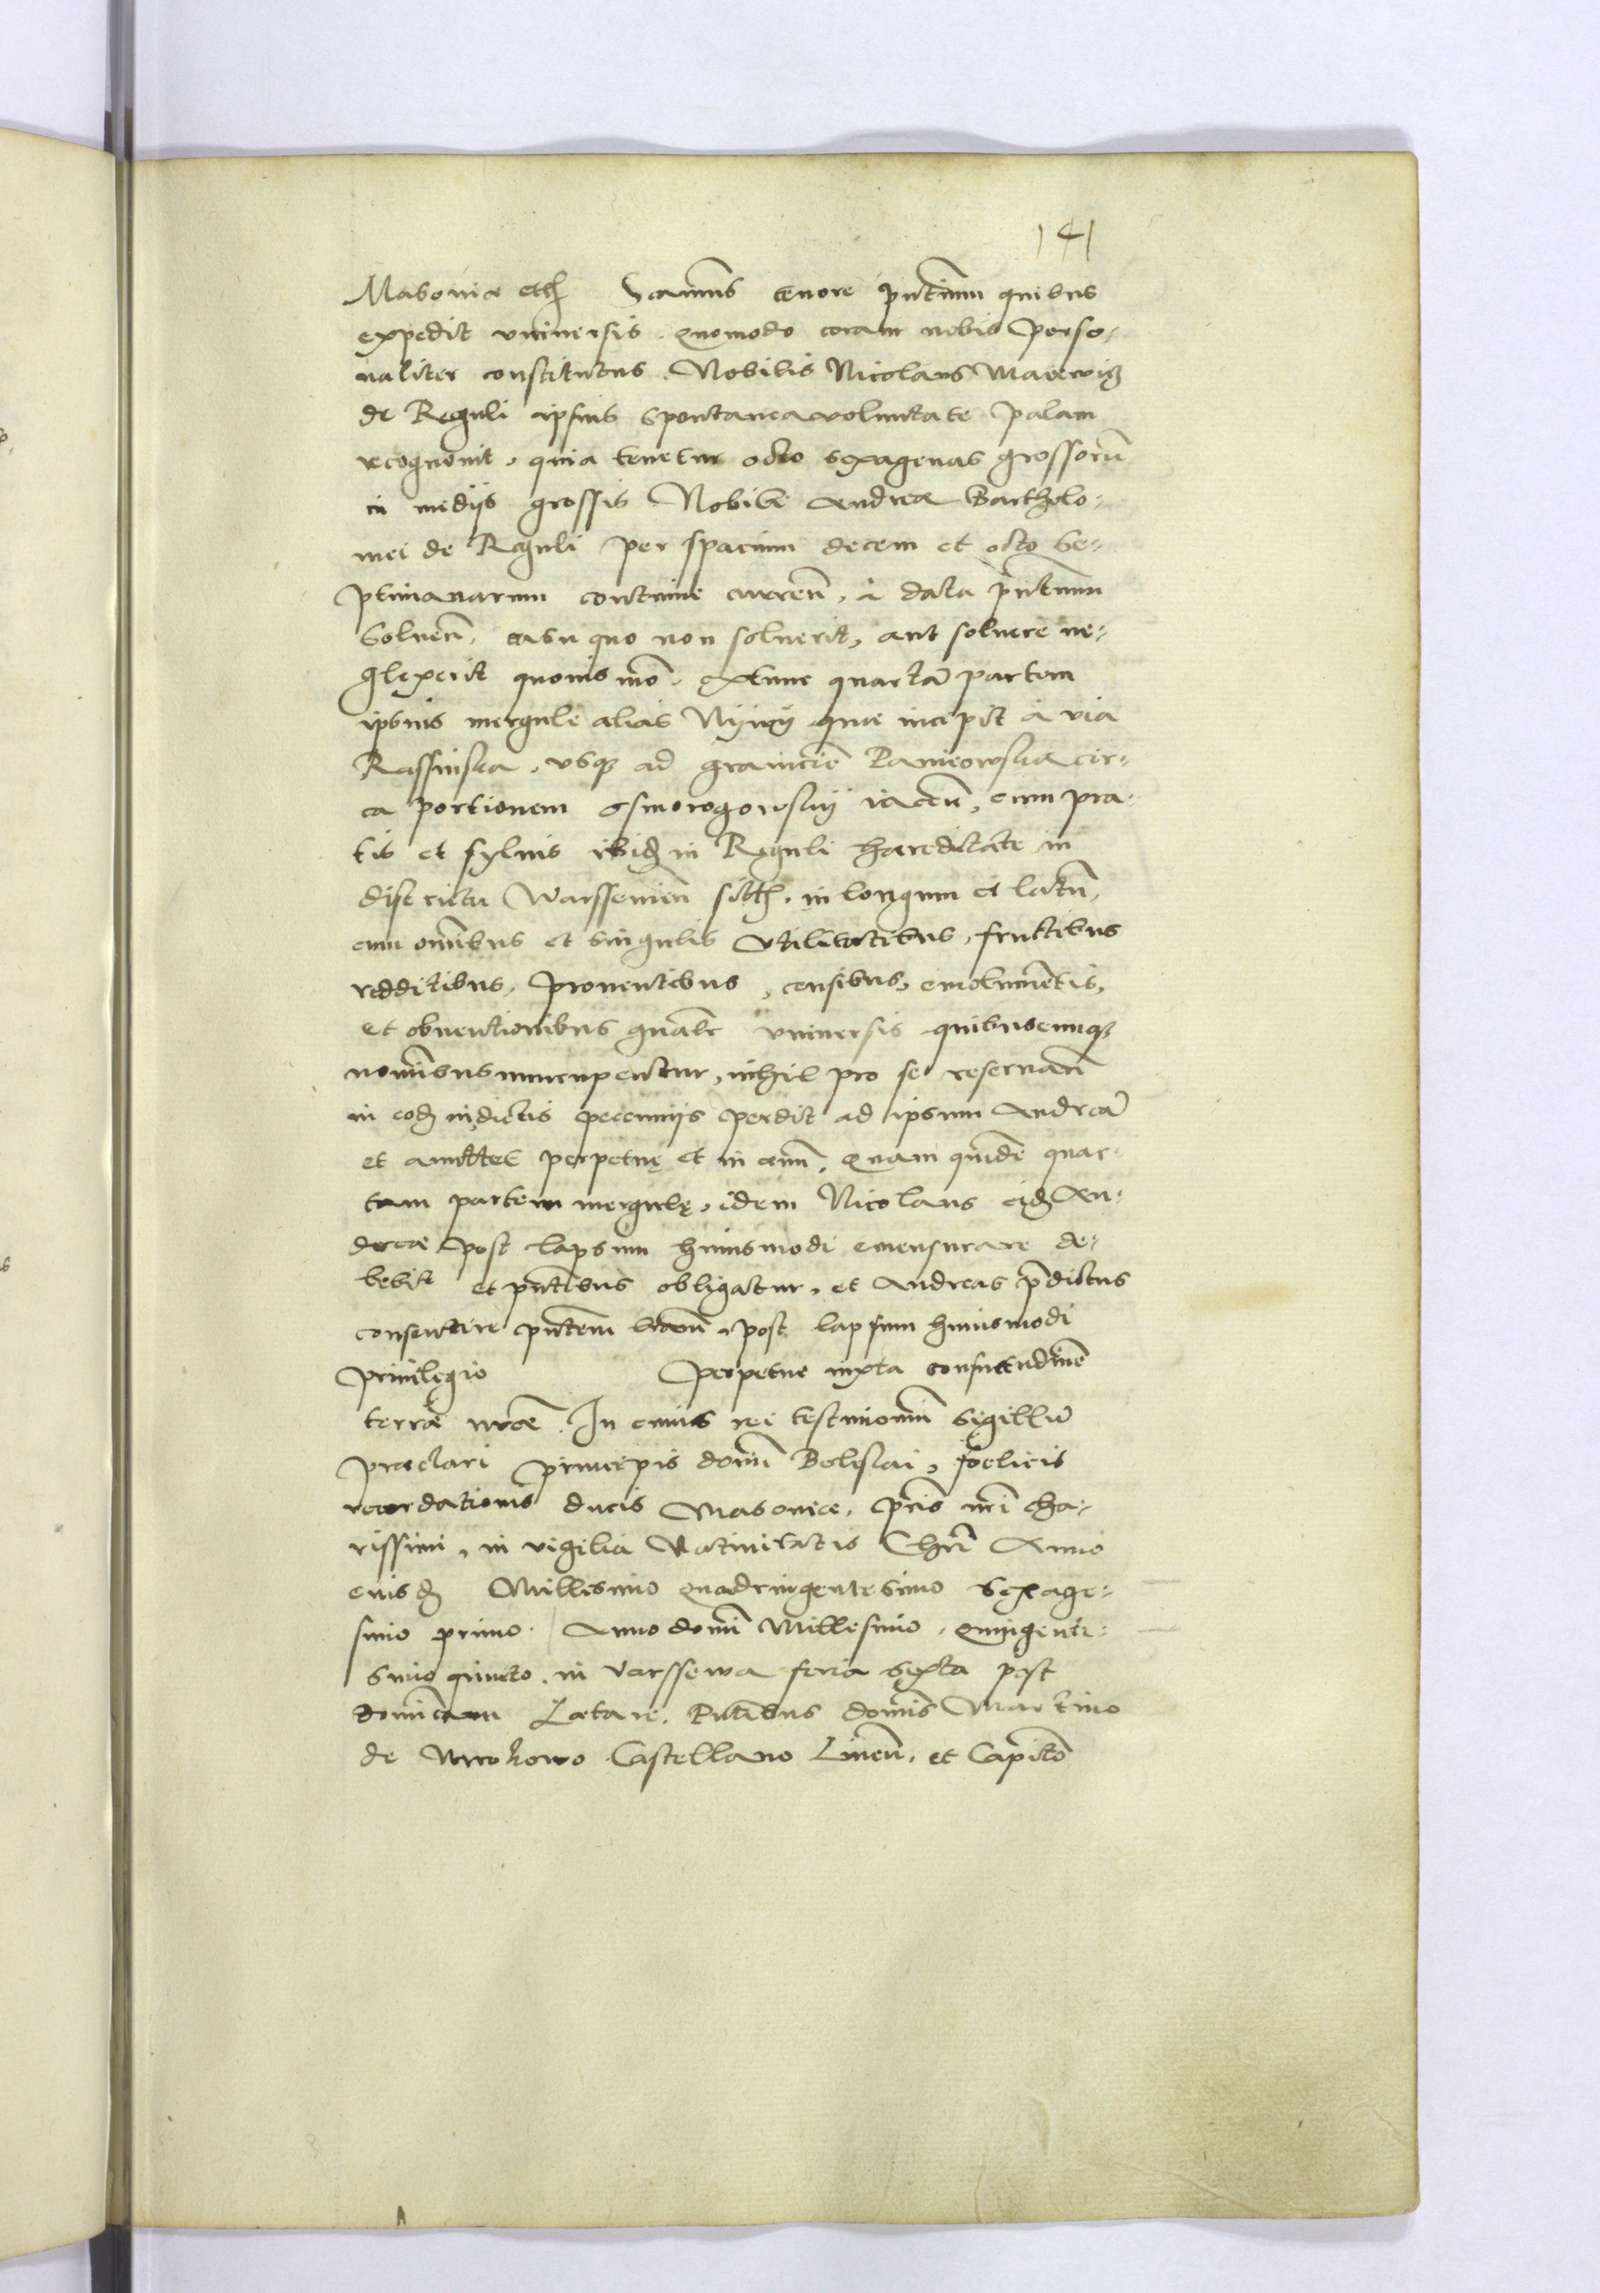 141
Masoviæ etcʒ Damus tenore pn̄tium quibus
expedit universis. Quomodo coram nobis perso-
naliter constitutus. Nobilis Nicolaus
de Reguli ipsius spontanea voluntate palam
recognovit, quia tenetur octo sexagenas grossorū
in medijs grossis Nobili Andreæ Bartholo-
mei de Reguli per spacium decem et octo se-
ptimanarum continue curren̄, à data pn̄tium
solven̄, casu quo non solverit, aut solvere ne-
glexerit quovis mō, extunc quartā partem
ipsius mergule alias Nywy que incepit à via
Rassinska, usqȝ ad graniciē Panieowska cir-
ca portionem Osmorogowskij iacen̄, cum pra-
tis et sylvis ibidȝ in Reguli hæreditate in
districtu Warssevien̄ sitʒ, in longum et latū,
cum om̄ibus et singulis utilitatibus, fructibus
redditibus, proventibus, censibus, emolumētis,
et obventionibus gn̄alr universis quibuscunqȝ
nomībus nuncupentur, nihil pro se reservan̄
in eodʒ in dictis pecuniis perdit ad ipsum Andreā
et amittet perpetuę et in ævū, Quam quidē quar-
tam partem mergulę, idem Nicolaus eidʒ An-
dreæ post lapsum huiusmodi emensurare de-
bebit et pn̄tibus obligatur, et Andreas p̄dictus
consentire pn̄tem post lapsum huiusmodi
privilegio perpetue iuxta consuetudinē
terræ nr̄æ. In cuius rei testimoniū sigillū
præclari principis domī Bolislai, fœlicis
recordationis ducis Masoviæ, pr̄is nr̄i cha-
rissimi, in vigilia Nativitatis Chrī Anno
eiusdʒ Millesimo quadringentesimo sexage-
simo primo. Anno domī Millesimo, quingente-
simo quinto, in Varssewa feria sexta post
domīcam Lætare. Pn̄tibus domīs Martino
de Castellano Livien̄, et Capitō